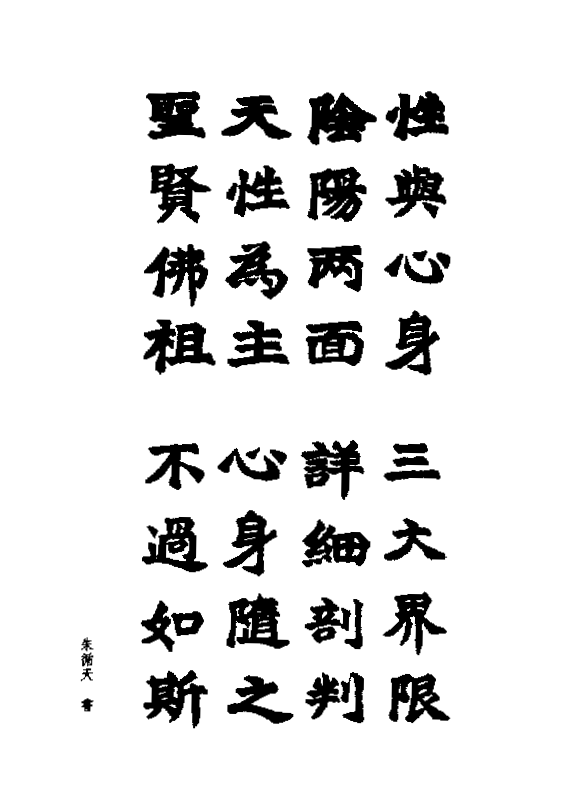 性與心身 三大界限
陰陽两面 詳細剖判
天性為主 心身隨之
聖賢佛祖 不過如斯
朱循天 書